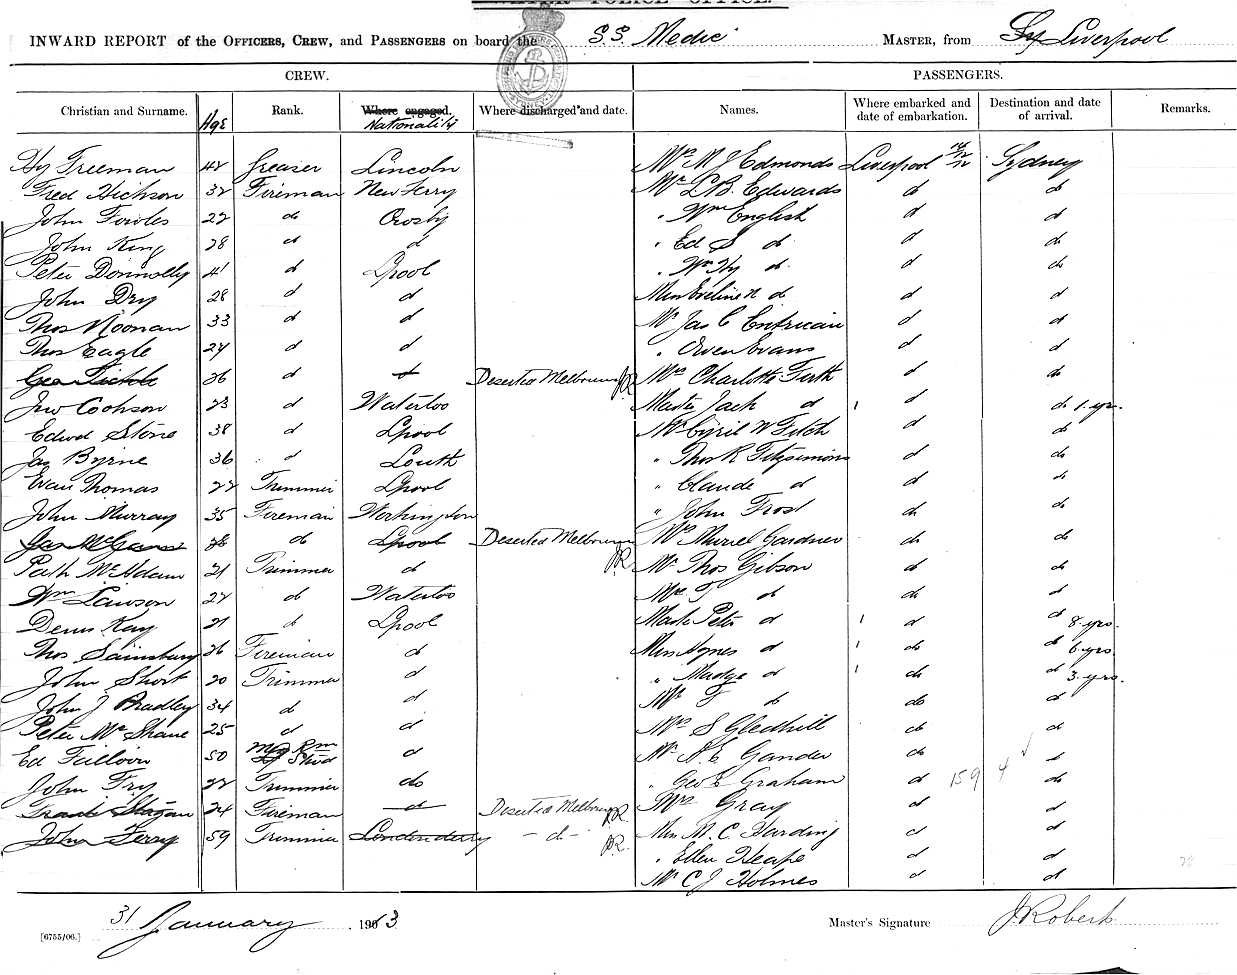 WATER POLICE OFFICE.
INWARD REPORT of the OFFICERS, CREW, and PASSENGERS on board the S.S. Medic MASTER, from Liverpool
CREW. PASSENGERS.
Christian and Surname. Age Rank. Where engaged. Nationality Where discharged and date. Names. Where embarked and date of embarkation. Destination and date of arrival. Remarks.
Hy Freeman 42 Greaser Lincoln Mrs M J Edmonds Liverpool Sydney
Fred Hickson 32 Fireman New Ferry Mr L B. Edwards d do
John Fowles 22 do Crosby " Wm English d d
John King 28 d d " Ed S do d do
Peter Donnolly 41 d Lpool " Wm Hy do d do
John Dry 28 d d Miss Eveline N d d d
Thos Noonan 33 d d Mr Jas C Entrican d d
Thos Eagle 24 d d " Owen Evans d d
Geo 36 d d Deserted Melbourne JR Mrs Charlotte Firth d do
Jno Cookson 23 d Waterloo Master Jack d 1 d do 1 yr.
Edwd Stone 38 d Lpool Mr Cyril W Fitch d do
Jas Byrne 36 d Louth " Thos R Fitzsimons d do
Evan Thomas 22 Trimmer Lpool " Claude d d do
John Murray 35 Fireman Workington " John Frost do do
Jas McGann 28 do Lpool Deserted Melbourne JR Mrs Muriel Gardner do do
Path McAdam 21 Trimmer d Mr Thos Gibson do do
Wm Lawson 22 do Waterloo Mrs T do do d
Denis Kay 21 d Lpool Mast Peter d 1 d d 8 yrs.
Thos Sainsbury 26 Fireman d Miss Agnes d 1 do d 6 yrs
John Short 20 Trimmer d " Madge d 1 do d 3 yrs.
John J Bradley 34 d d Mr T do do d
Peter McShane 25 d d Mrs S Gledhill do do
Ed 50 Stwd d Mr A. E Gander do d
John Fry 22 Trimmer do " Geo E Graham d 159 4 do
Frank 24 Fireman d Deserted Melbourne JR Mrs Gray d do
John Ferry 59 Trimmer Londonderry - d - JR. Miss M. C. Harding d do
" Ellen Heape d d
Mr C J Holmes d d
31 January 1913 Master's Signature J Roberts
[6755/06.]